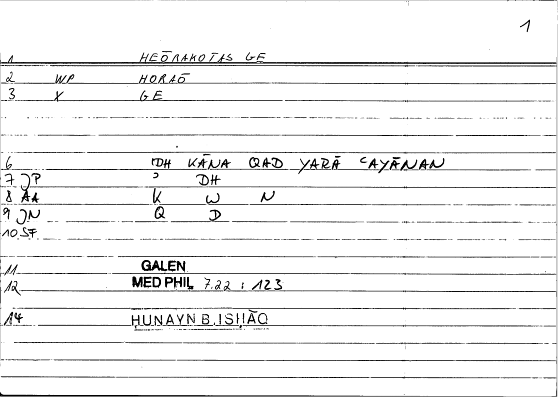 1
1 HEŌRAKOTAS GE
2 WP HORAŌ
3 X GE
6 ʾDH KĀNA QAD YARĀ ʿAYĀNAN
7 JP ʾ DH
8 AA K W N
9 JN Q D
10 SF
11 GALEN
12 MED PHIL 7.22 : 123
14 ḤUNAYN B. ISḤĀQ